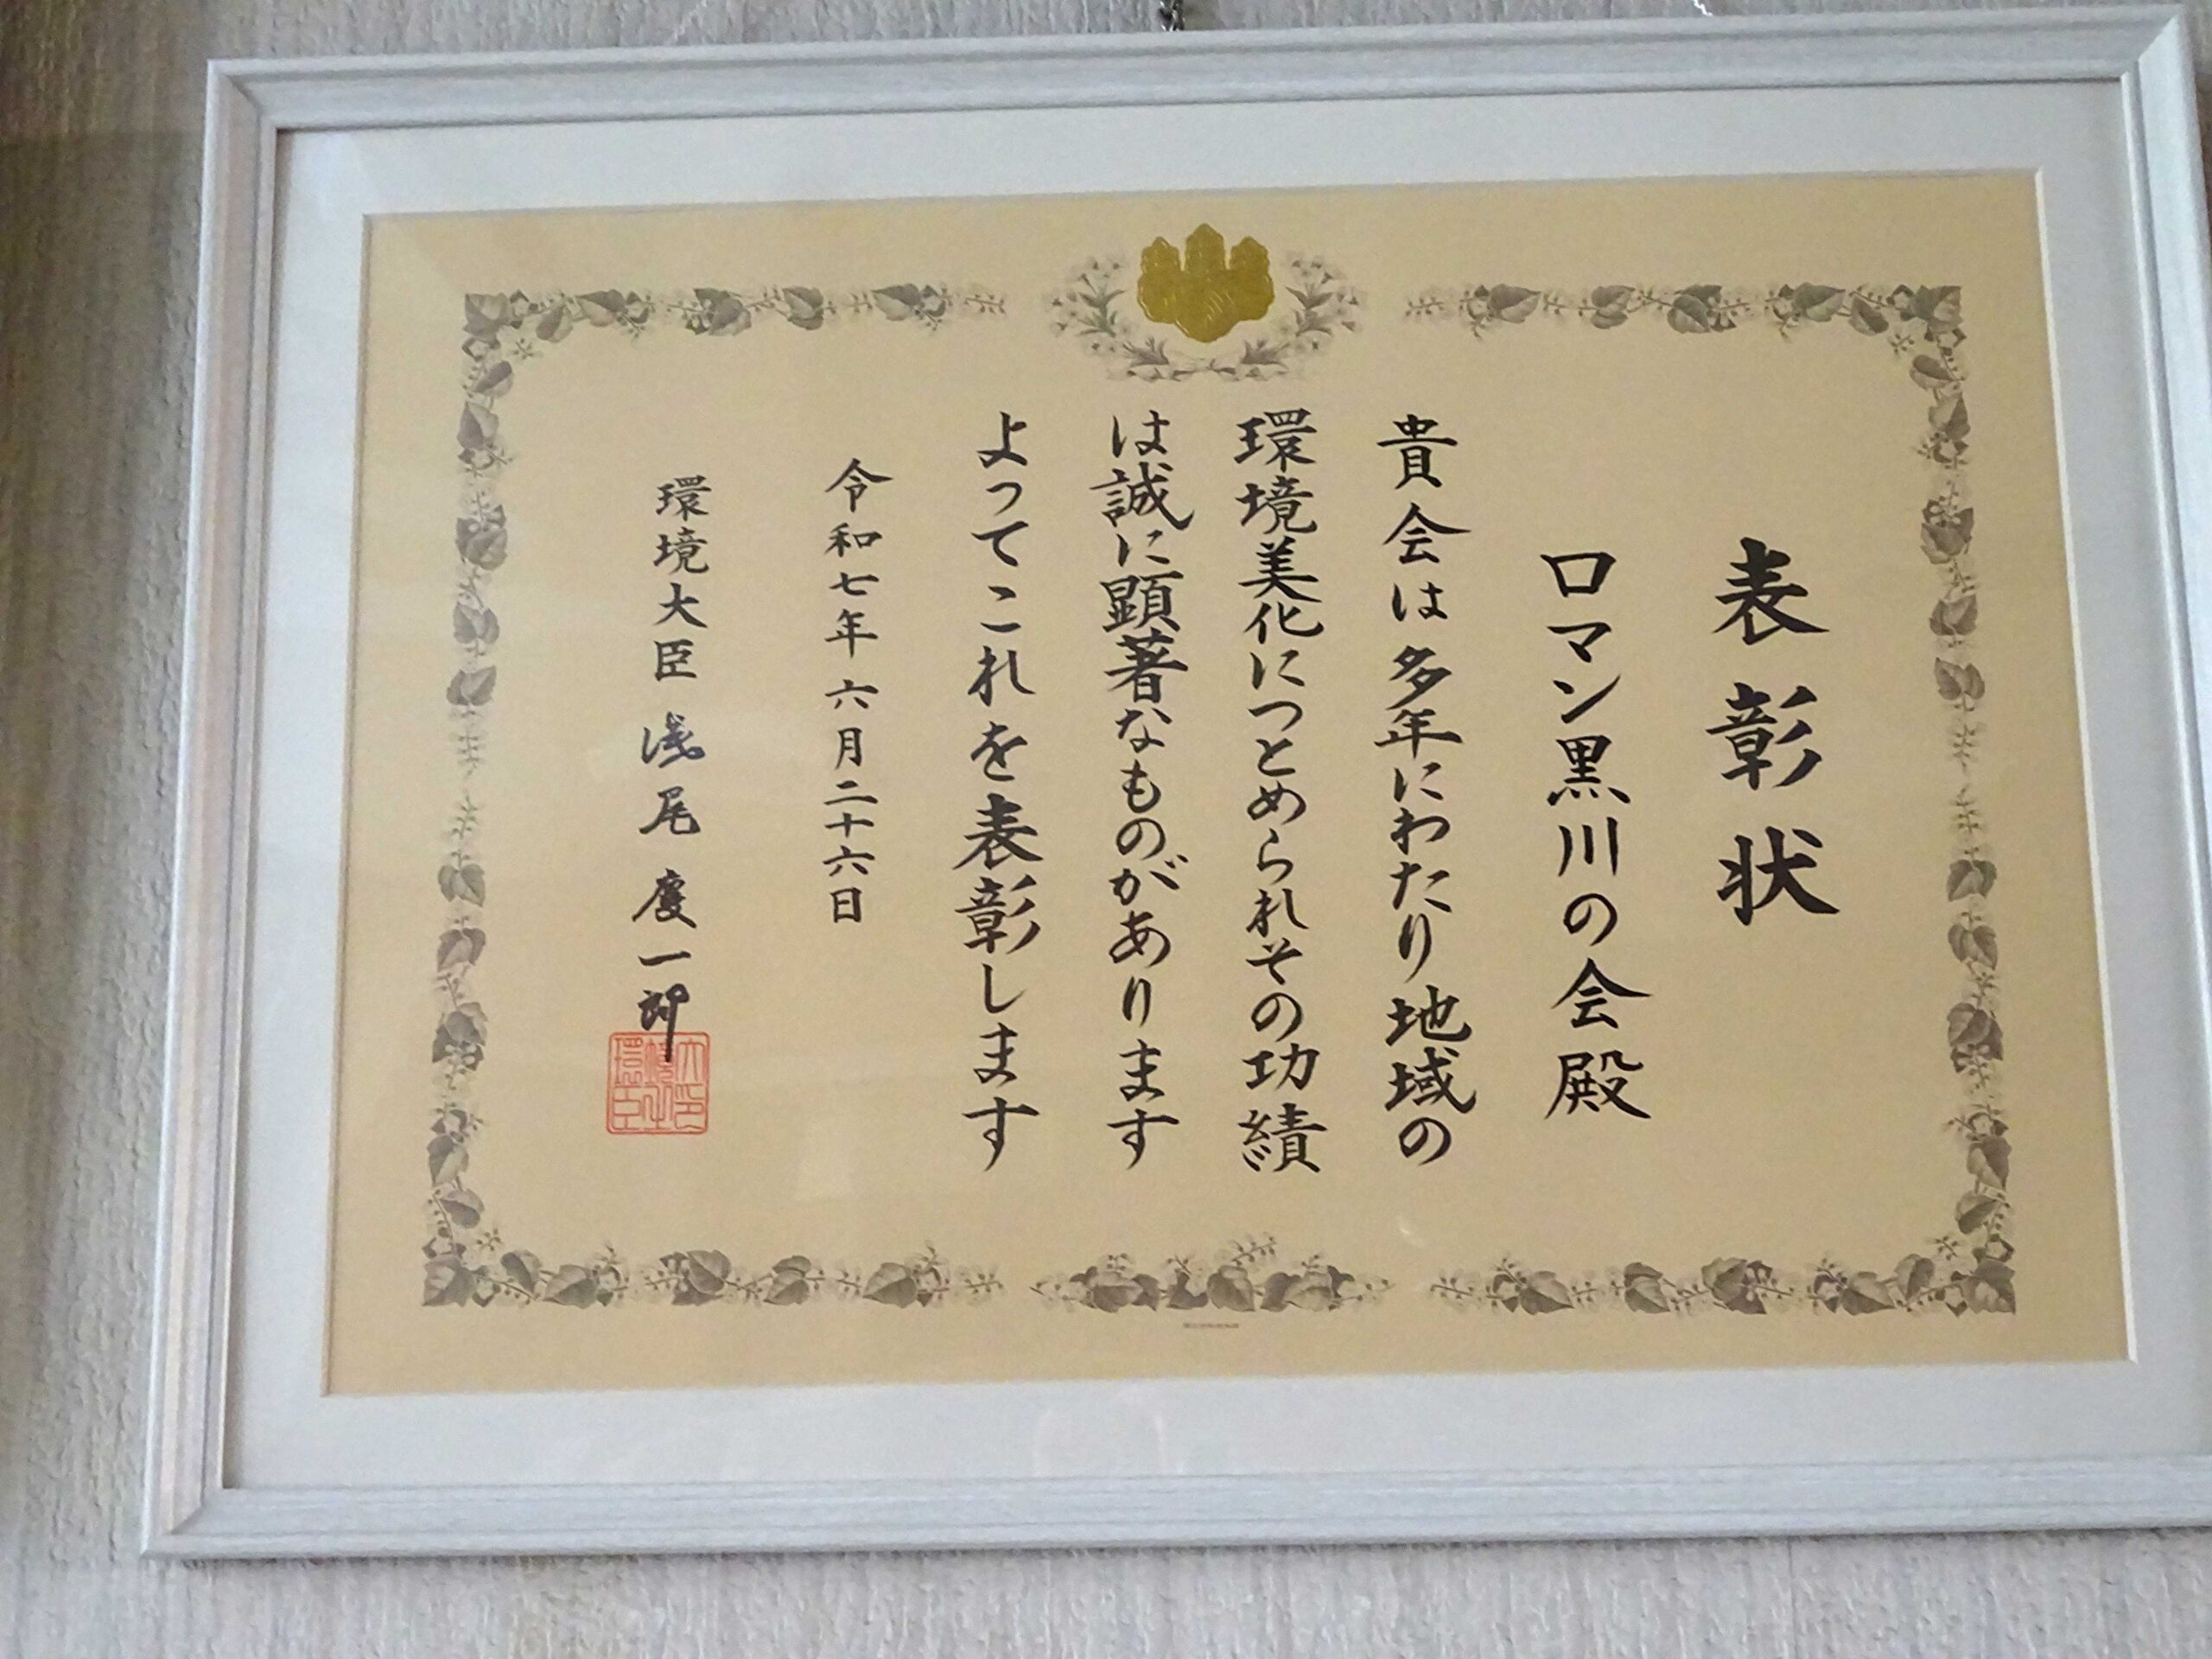 表彰状
ロマン黒川の会殿
貴会は多年にわたり地域の
環境美化につとめられその功績
は誠に顕著なものがあります
よってこれを表彰します
令和七年六月二十六日
環境大臣 浅尾慶一郎
環境大臣之印